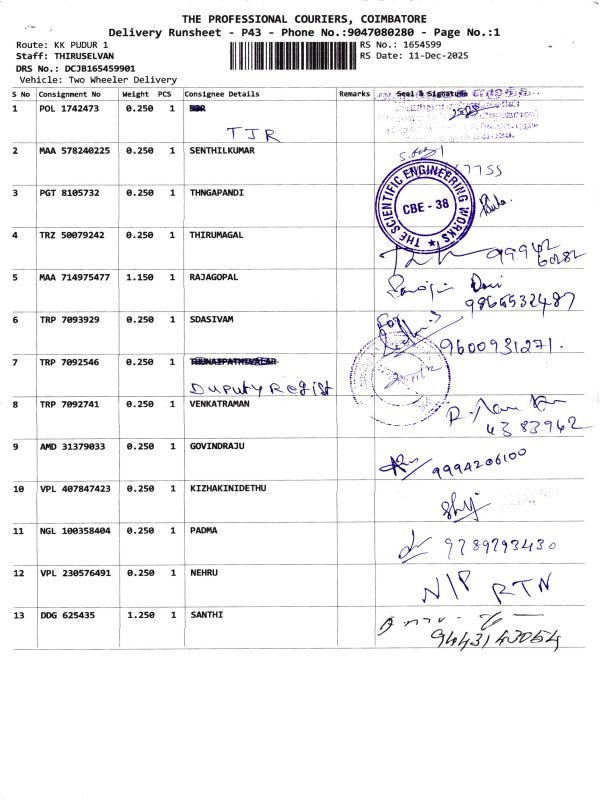 THE PROFESSIONAL COURIERS, COIMBATORE
Delivery Runsheet - P43 - Phone No.:9047080280 - Page No.:1
Route: KK PUDUR 1
RS No.: 1654599
Staff: THIRUSELVAN
RS Date: 11-Dec-2025
DRS No.: DCJB165459901
Vehicle: Two Wheeler Delivery
S No Consignment No Weight PCS Consignee Details Remarks Seal & Signature
1 POL 1742473 0.250 1
TJR
2 MAA 578240225 0.250 1 SENTHILKUMAR
3 PGT 8105732 0.250 1 THNGAPANDI
THE SCIENTIFIC ENGINEERING WORKS ★
CBE - 38
4 TRZ 50079242 0.250 1 THIRUMAGAL
99942
60282
5 MAA 714975477 1.150 1 RAJAGOPAL
9865532487
6 TRP 7093929 0.250 1 SDASIVAM
9600931271.
7 TRP 7092546 0.250 1 THUNAIPATHIVALAR
Duputy Regist
8 TRP 7092741 0.250 1 VENKATRAMAN
4383942
9 AMD 31379033 0.250 1 GOVINDRAJU
9994206100
10 VPL 407847423 0.250 1 KIZHAKINIDETHU
Shij
11 NGL 100358404 0.250 1 PADMA
9789793430
12 VPL 230576491 0.250 1 NEHRU
N/P RTN
13 DDG 625435 1.250 1 SANTHI
9443143054